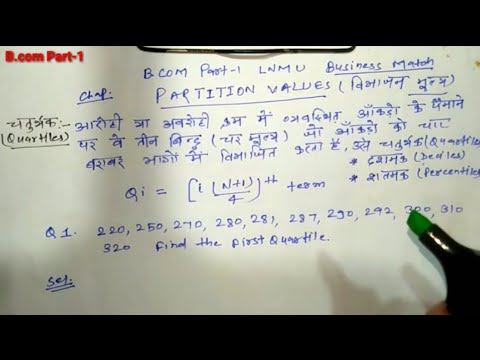 B.com Part-1
B.COM Part-1 LNMU Business Math
Chap: PARTITION VALUES (विभाजन मूल्य)
चतुर्थक:- आरोही या अवरोही क्रम में व्यवस्थित आँकड़ो के पैमाने
(Quartiles) पर वे तीन बिन्दु (चर मूल्य) जो आँकड़ो को चार
बराबर भागों में विभाजित करता है, उसे चतुर्थक (Quartiles)
* दशमक (Deciles)
* शतमक (Percentiles)
Qi = [i (N+1)/4]th term
Q1. 220, 250, 270, 280, 281, 287, 290, 292, 300, 310
320 Find the first Quartile.
Sol.